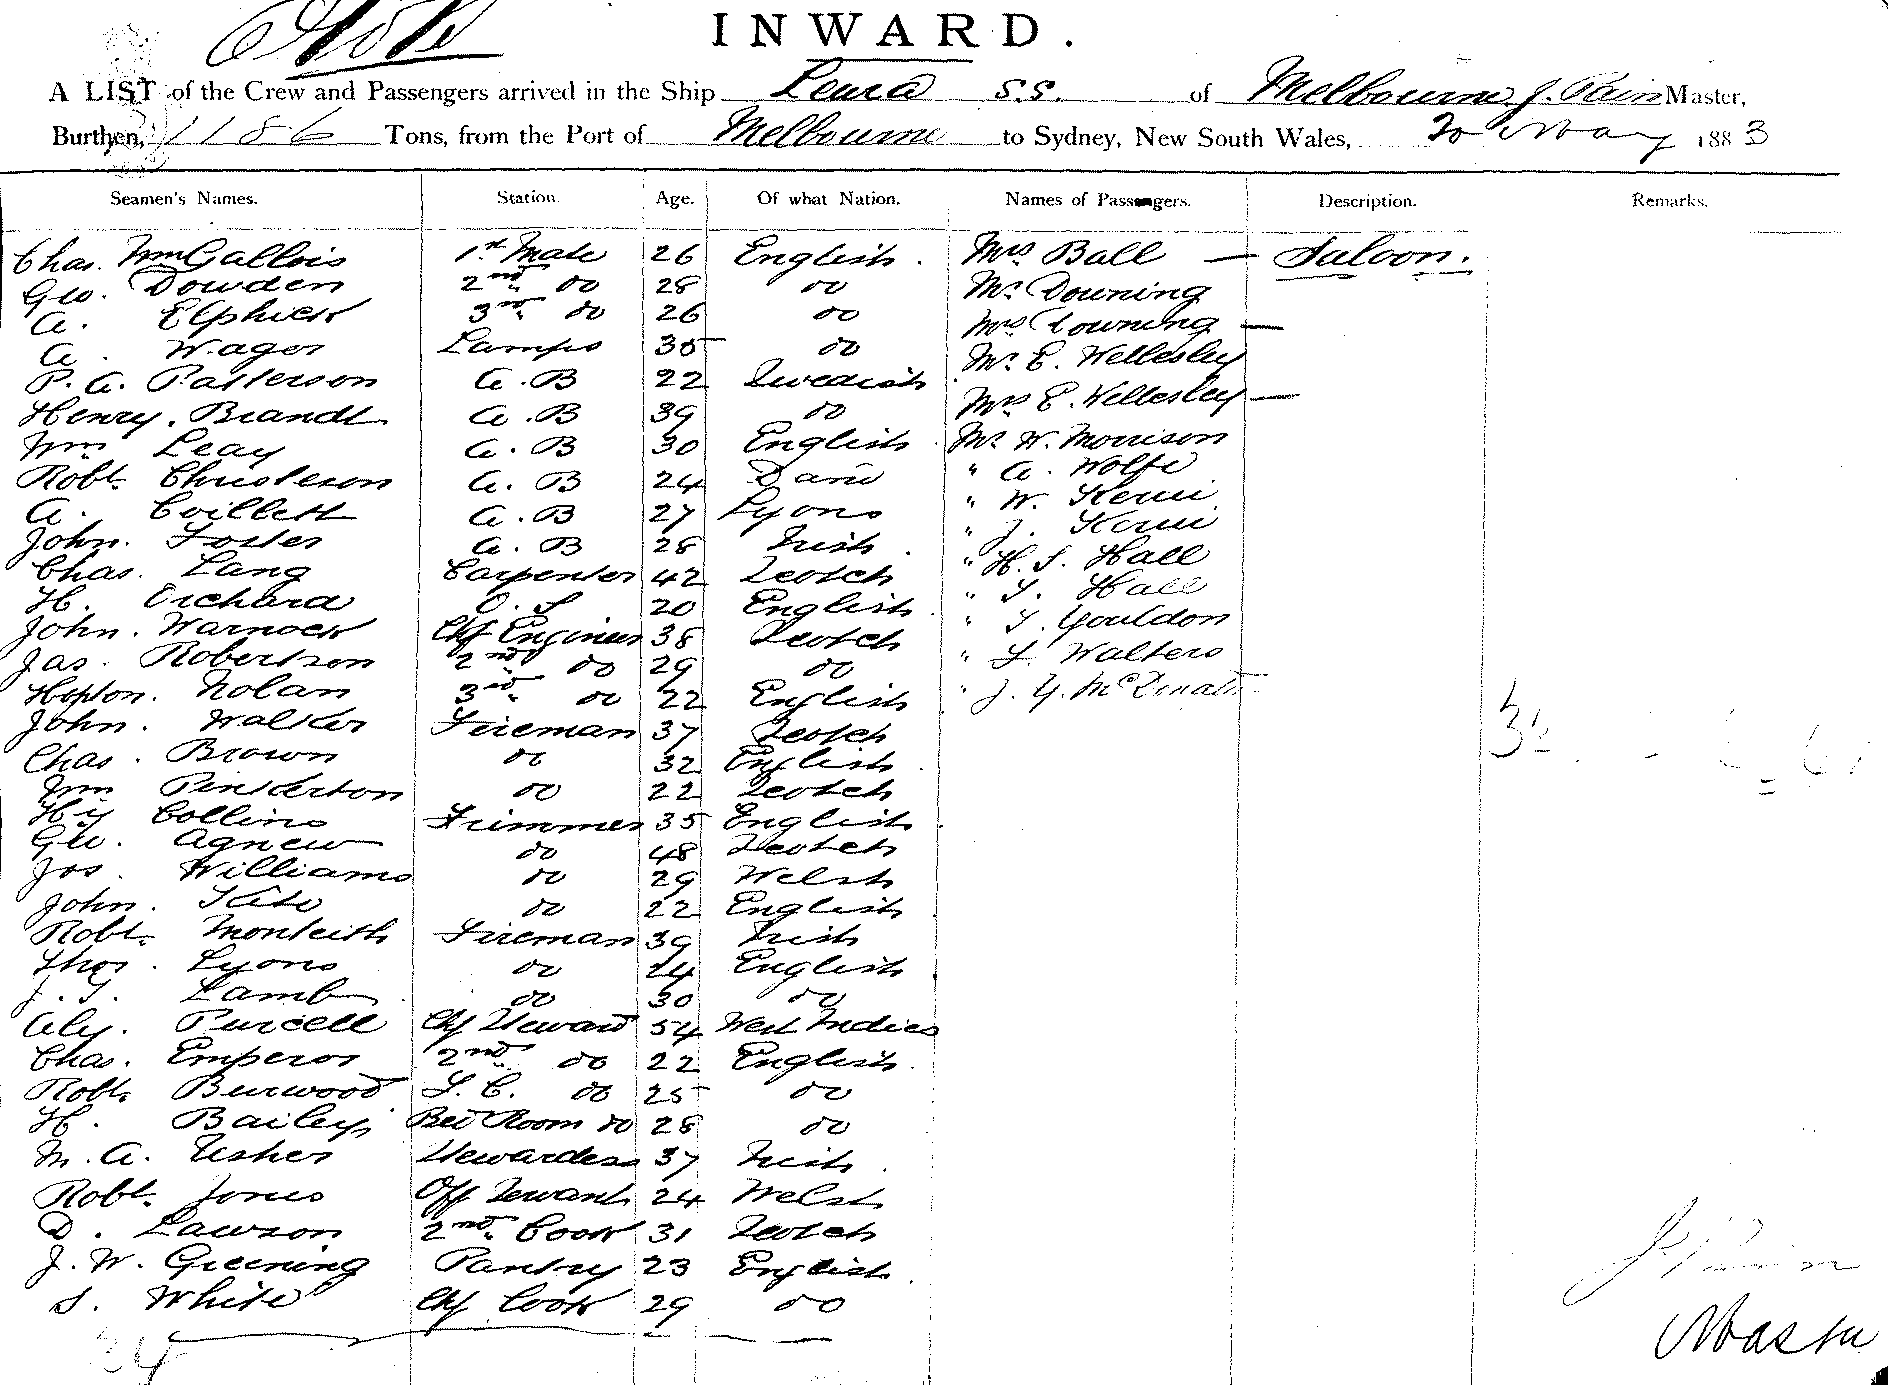 INWARD.
A LIST of the Crew and Passengers arrived in the Ship Leura S.S. of Melbourne J. Pain Master,
Burthen, 1186 Tons, from the Port of Melbourne to Sydney, New South Wales, 20 May 1883
Seamen's Names. Station. Age. Of what Nation. Names of Passengers. Description. Remarks.
Chas. Wm Gallois 1st Mate 26 English. Mrs Ball — Saloon.
Geo. Dowden 2nd do 28 do Mr Downing
A. Elphick 3rd do 26 do Mrs Downing —
A. Wager Lamps 35 do Mr E. Wellesley
P. A. Patterson A.B 22 Swedish Mrs E. Wellesley —
Henry. Brandt A.B 39 do Mr W. Morrison
Wm Leay A.B 30 English " A. Wolfe
Robt. Christeson A.B 24 Dane " W. Kerui
A. Coillett A.B 27 Lyons " J. Kerui
John. Foster A.B 28 Irish " H. S. Hall
Chas. Lang Carpenter 42 Scotch " S. Hall
H. Orchard O.S 20 English " T. Gouldon
John. Warnock Chf Engineer 38 Scotch " S. Walters
Jas. Robertson 2nd do 29 do " J. Y.
Hopton. Nolan 3rd do 22 English
John. Walker Fireman 37 Scotch
Chas. Brown do 32 English
Wm Pinkerton do 22 Scotch
Hy Collins Trimmer 35 English
Geo. Agnew do 48 Scotch
Jos. Williams do 29 Welsh
John. do 22 English
Robt. Monteith Fireman 39 Irish
Thos. Lyons do 24 English
J. T. Lamb do 30 do
Alex. Purcell Chf Steward 54 West Indies
Chas. Emperor 2nd do 22 English
Robt. Burwood S.C. do 25 do
H. Bailey Bed Room do 28 do
M. A. Usher Stewardess 37 Irish
Robt. Jones Off Servant 24 Welsh
D. Lawson 2nd Cook 31 Scotch
J. W. Greening Pantry 23 English
S. White Chf Cook 29 do
34
J. Pain
Master